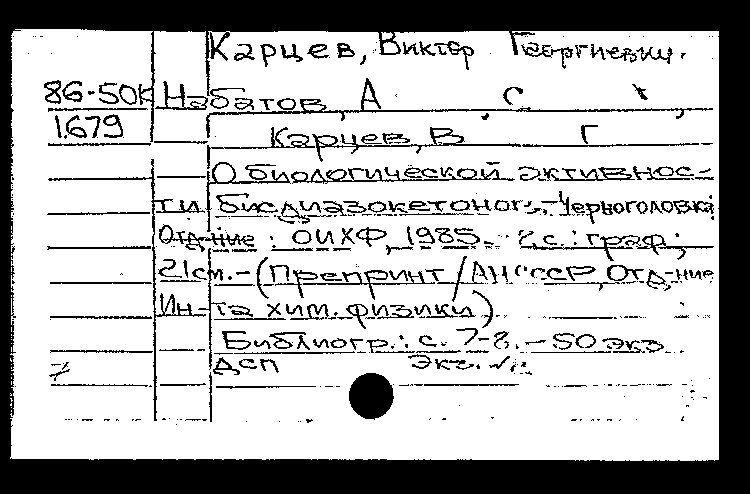 Карцев, Виктор Георгиевич.
86-50К Набатов, А С
1.679 Карцев, В Г
О биологической активнос-
ти бисдиазокетонов.- Черноголовка:
Отд-ние : ОИХФ, 1985.- 8 с. : граф.;
21см.- (Препринт / АН СССР, Отд-ние
Ин-та хим. физики)
Библиогр.: с. 7-8.- 50 экз
7 ДСП Экз.